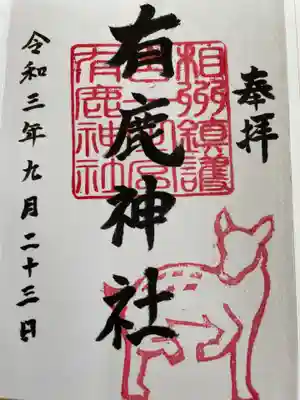 奉拝
有鹿神社
令和三年九月二十三日
相州鎮護
有鹿神社